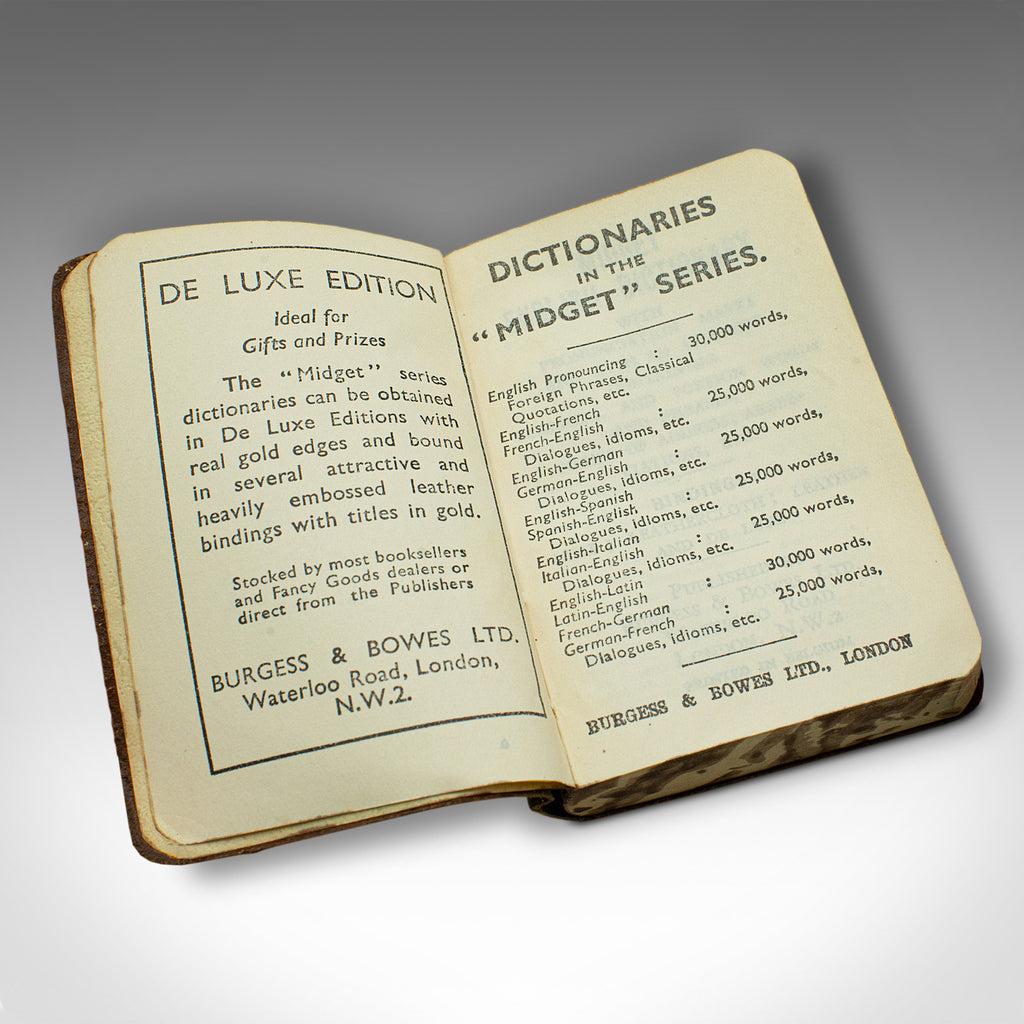 DE LUXE EDITION
Ideal for
Gifts and Prizes
The "Midget" series
dictionaries can be obtained
in De Luxe Editions with
real gold edges and bound
in several attractive and
heavily embossed leather
bindings with titles in gold.
Stocked by most booksellers
and Fancy Goods dealers or
direct from the Publishers
BURGESS & BOWES LTD.
Waterloo Road, London,
N.W.2.
DICTIONARIES
IN THE
"MIDGET" SERIES.
English Pronouncing : 30,000 words,
Foreign Phrases, Classical
Quotations, etc.
English-French
French-English : 25,000 words,
Dialogues, idioms, etc.
English-German
German-English : 25,000 words,
Dialogues, idioms, etc.
English-Spanish
Spanish-English : 25,000 words,
Dialogues, idioms, etc.
English-Italian
Italian-English : 25,000 words,
Dialogues, idioms, etc.
English-Latin
Latin-English : 30,000 words,
French-German
German-French : 25,000 words,
Dialogues, idioms, etc.
BURGESS & BOWES LTD., LONDON